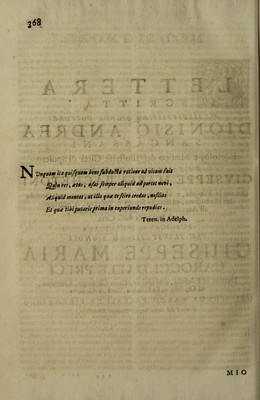 368
Nunquam ita quisquam bene subducta ratione ad vitam fuit
Quin res, ætas, usus semper aliquid ad portet novi,
Aliquid monet, ut illa quæ te scire credas, nescias
Et quæ tibi putaris prima in experiundo repudies.
Teren. in Adelph.
MIO